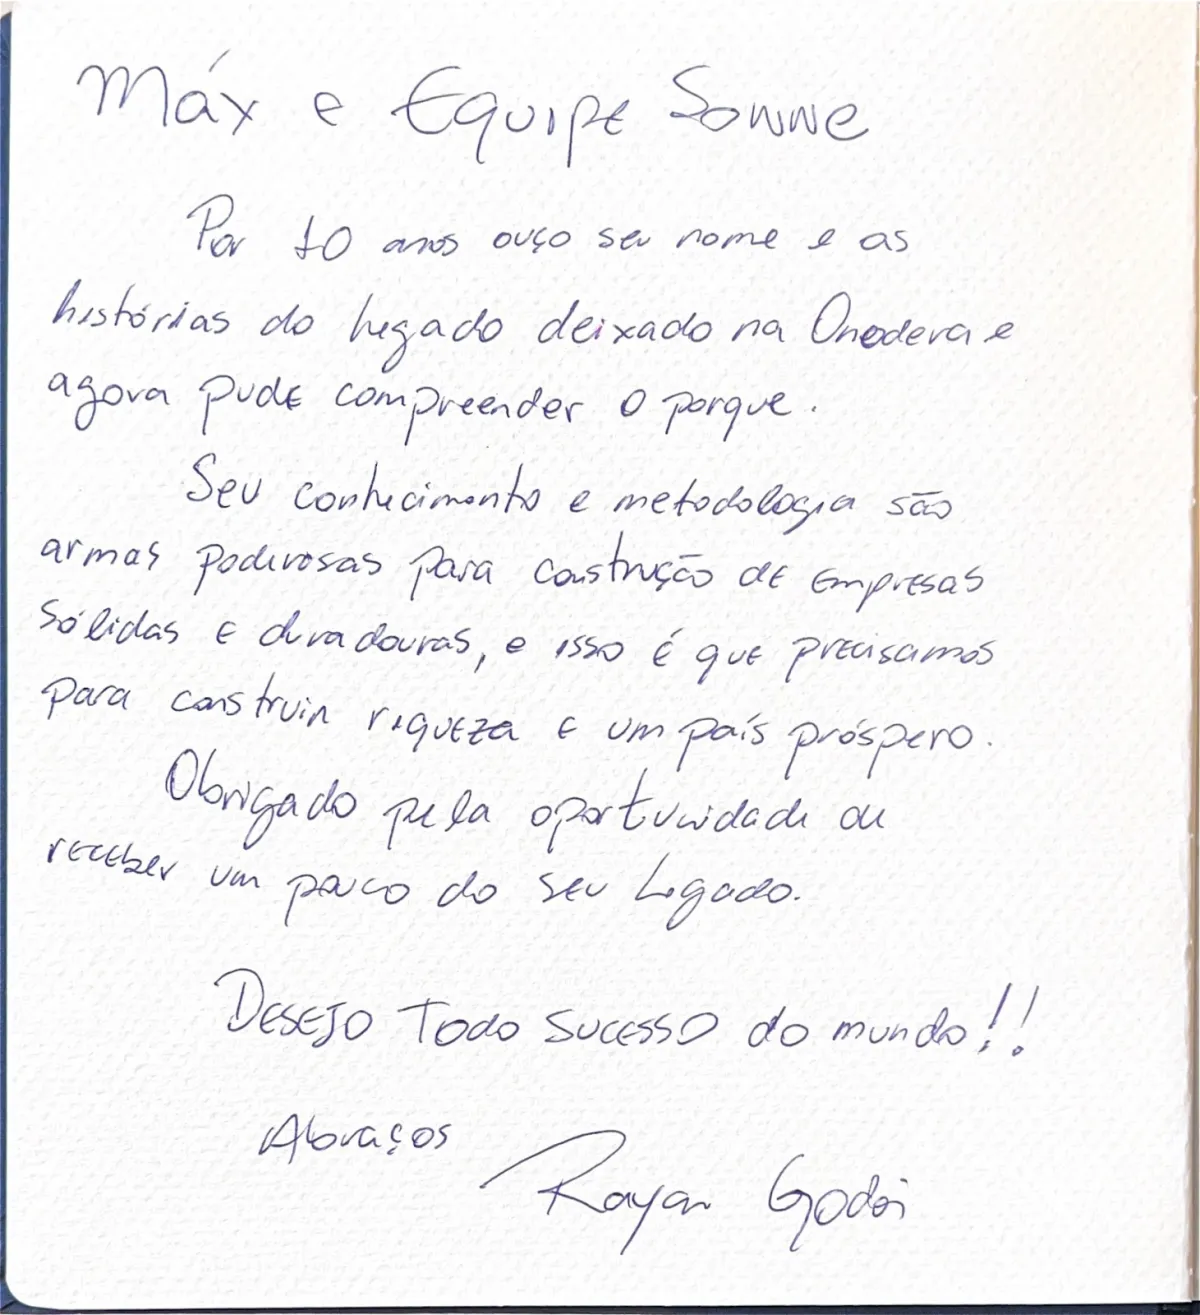 Máx e Equipe Sonne
Por 10 anos ouço seu nome e as
histórias do legado deixado na Onodera e
agora pude compreender o porque.
Seu conhecimento e metodologia são
armas poderosas para construção de empresas
sólidas e duradouras, e isso é que precisamos
para construir riqueza e um país próspero.
Obrigado pela oportunidade de
receber um pouco do seu Legado.
Desejo Todo Sucesso do mundo!!
Abraços
Rayan Godoi